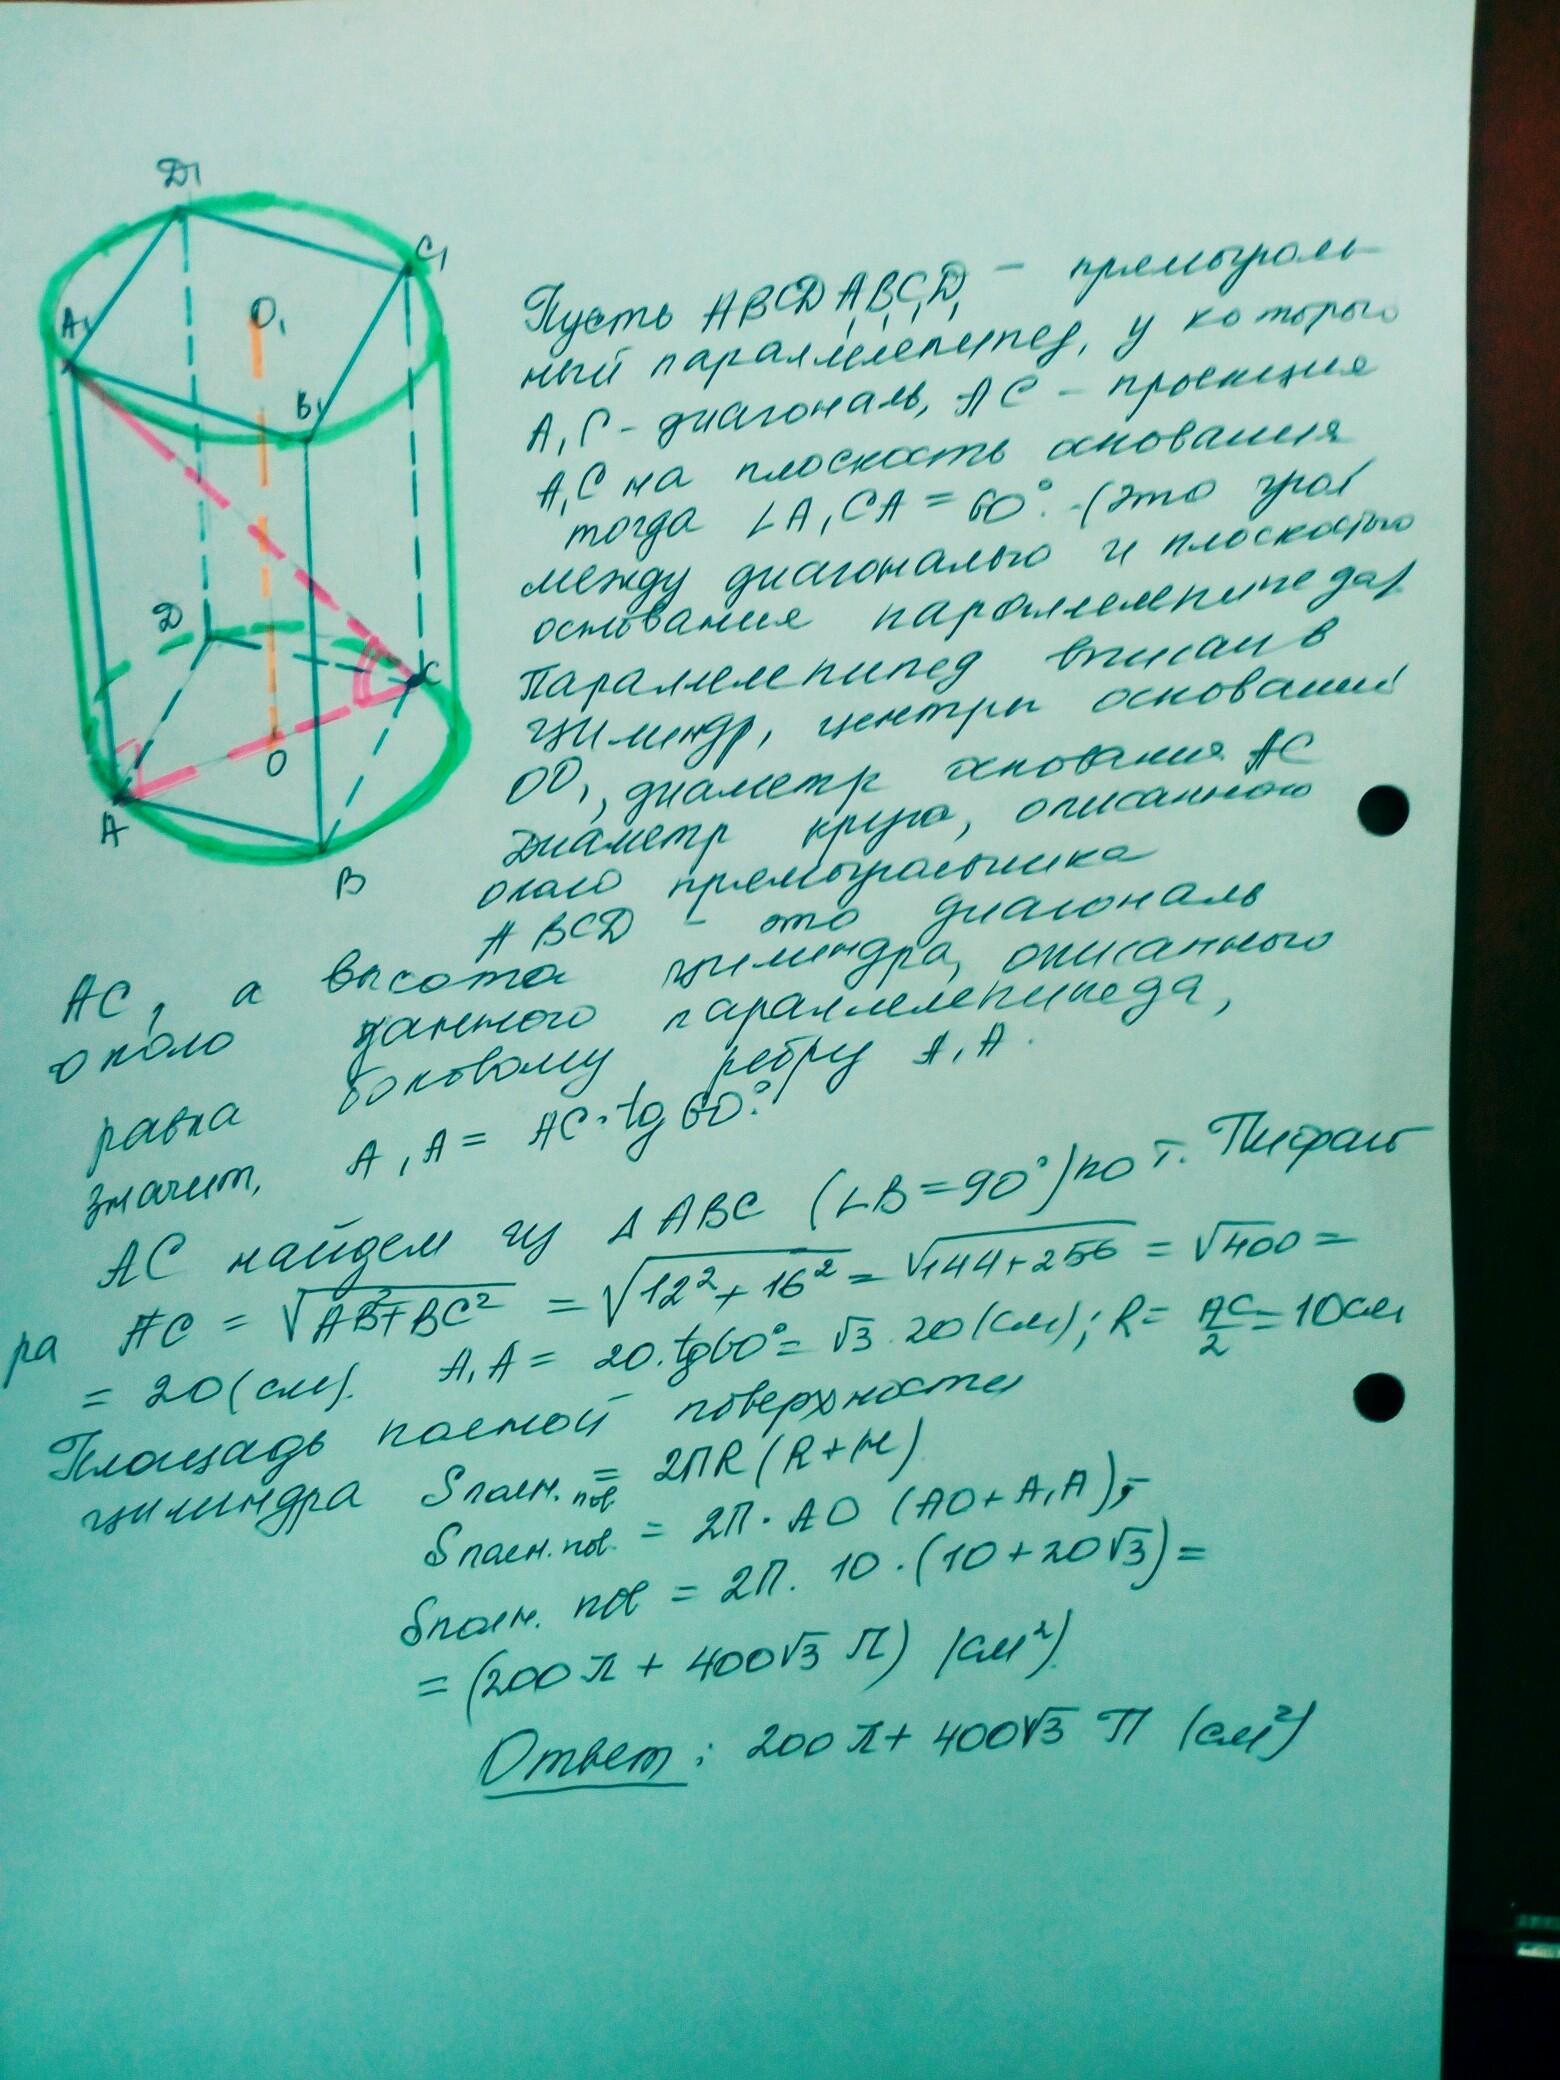 D₁
C₁
A₁
O₁
B₁
D
C
O
A
B
Пусть ABCDA₁B₁C₁D₁ – прямоуголь-
ный параллелепипед, у которого
A₁C – диагональ, AC – проекция
A₁C на плоскость основания
тогда ∠A₁CA = 60°. (это угол
между диагональю и плоскостью
основания параллелепипеда).
Параллелепипед вписан в
цилиндр, центры оснований
OO₁, диаметр основания AC
Диаметр круга, описанного
около прямоугольника
ABCD – это диагональ
AC, а высота цилиндра, описанного
около данного параллелепипеда,
равна боковому ребру A₁A.
значит, A₁A = AC·tg 60°.
AC найдем из ΔABC (∠B = 90°) по т. Пифаго
ра AC = √(AB²+BC²) = √(12²+16²) = √(144+256) = √400 =
= 20 (см). A₁A = 20·tg60° = √3·20 (см); R = AC/2 = 10см
Площадь полной поверхности
цилиндра Sполн. пов. = 2ПR(R+H)
Sполн. пов. = 2П·AO (AO+A₁A);-
Sполн. пов = 2П·10·(10+20√3) =
= (200π + 400√3 π) (см²).
Ответ: 200π + 400√3 П (см²)